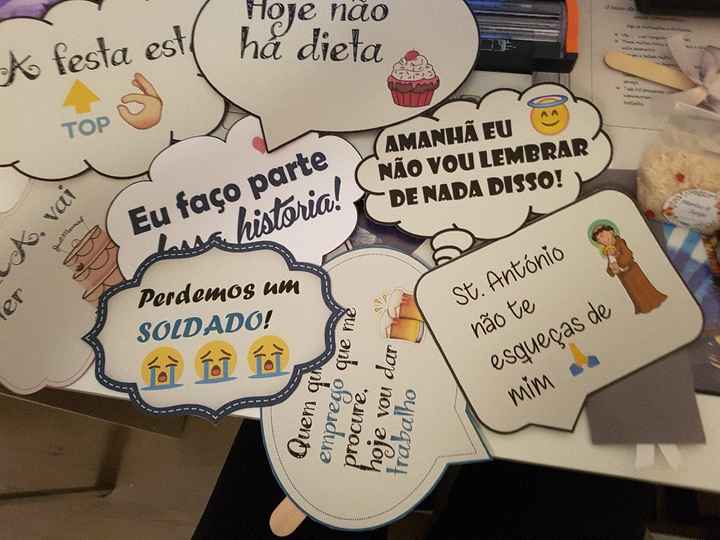 Hoje não
há dieta
A festa est
TOP
AMANHÃ EU
NÃO VOU LEMBRAR
DE NADA DISSO!
Eu faço parte
dessa historia!
vai
Perdemos um
SOLDADO!
St. António
não te
esqueças de
mim
Quem
emprego que me
procure,
hoje vou dar
trabalho